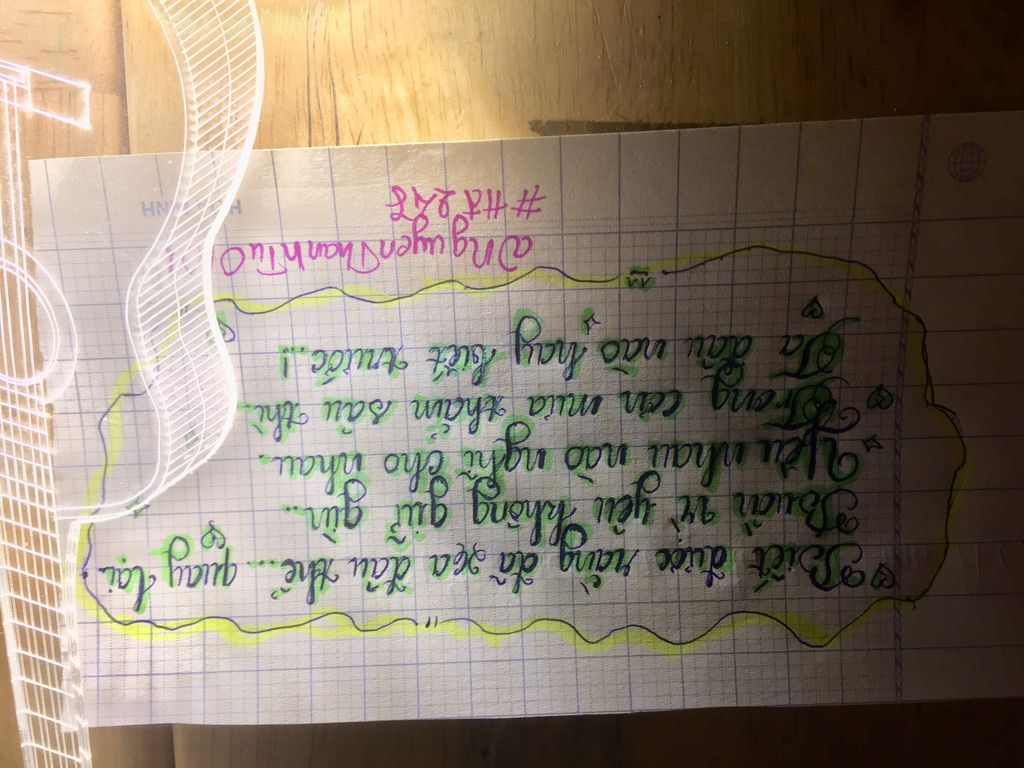 "
Biết được rằng đã xa đâu thể... quay lại.
Buồn vì yêu không giữ gìn...
Yêu nhau nào nghĩ cho nhau.
Trong cơn mưa thấm sâu thì...
Ta đâu nào hay biết trước...!
"
@NguyenThanhTu0